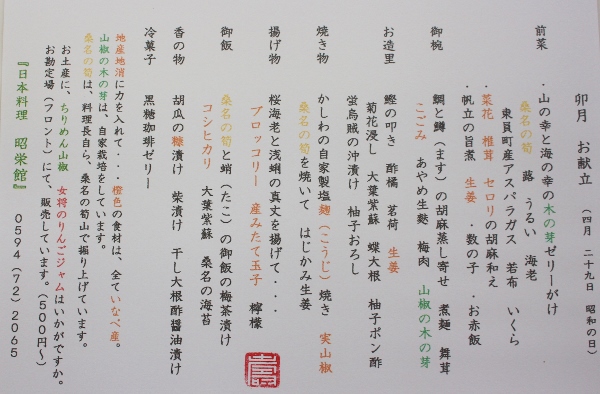 卯月　お献立　（四月　二十九日　昭和の日）
前菜　・山の幸と海の幸の木の芽ゼリーがけ
桑名の筍　蕗　うるい　海老
東員町産アスパラガス　若布　いくら
・菜花　椎茸　セロリの胡麻和え
・帆立の旨煮　生姜　・数の子　・お赤飯
御椀　鯛と鱒（ます）の胡麻蒸し寄せ　煮麺　舞茸
こごみ　あやめ生麩　梅肉　山椒の木の芽
お造里　鰹の叩き　酢橘　茗荷　生姜
菊花浸し　大葉紫蘇　蝶大根　柚子ポン酢
蛍烏賊の沖漬け　柚子おろし
焼き物　かしわの自家製塩麹（こうじ）焼き　実山椒
桑名の筍を焼いて　はじかみ生姜
揚げ物　桜海老と浅蜊の真丈を揚げて・・・
ブロッコリー　産みたて玉子　檸檬
御飯　桑名の筍と蛸（たこ）の御飯の梅茶漬け
コシヒカリ　大葉紫蘇　桑名の海苔
香の物　胡瓜の糠漬け　柴漬け　干し大根酢醤油漬け
冷菓子　黒糖珈琲ゼリー
地産地消に力を入れて・・・橙色の食材は、全ていなべ産。
山椒の木の芽は、自家栽培をしています。
桑名の筍は、料理長自ら、桑名の筍山で掘り上げています。
お土産に、ちりめん山椒　女将のりんごジャムはいかがですか。
お勘定場（フロント）にて、販売しています。（５００円～）
『日本料理　昭栄館』　０５９４（７２）２０６５
寿